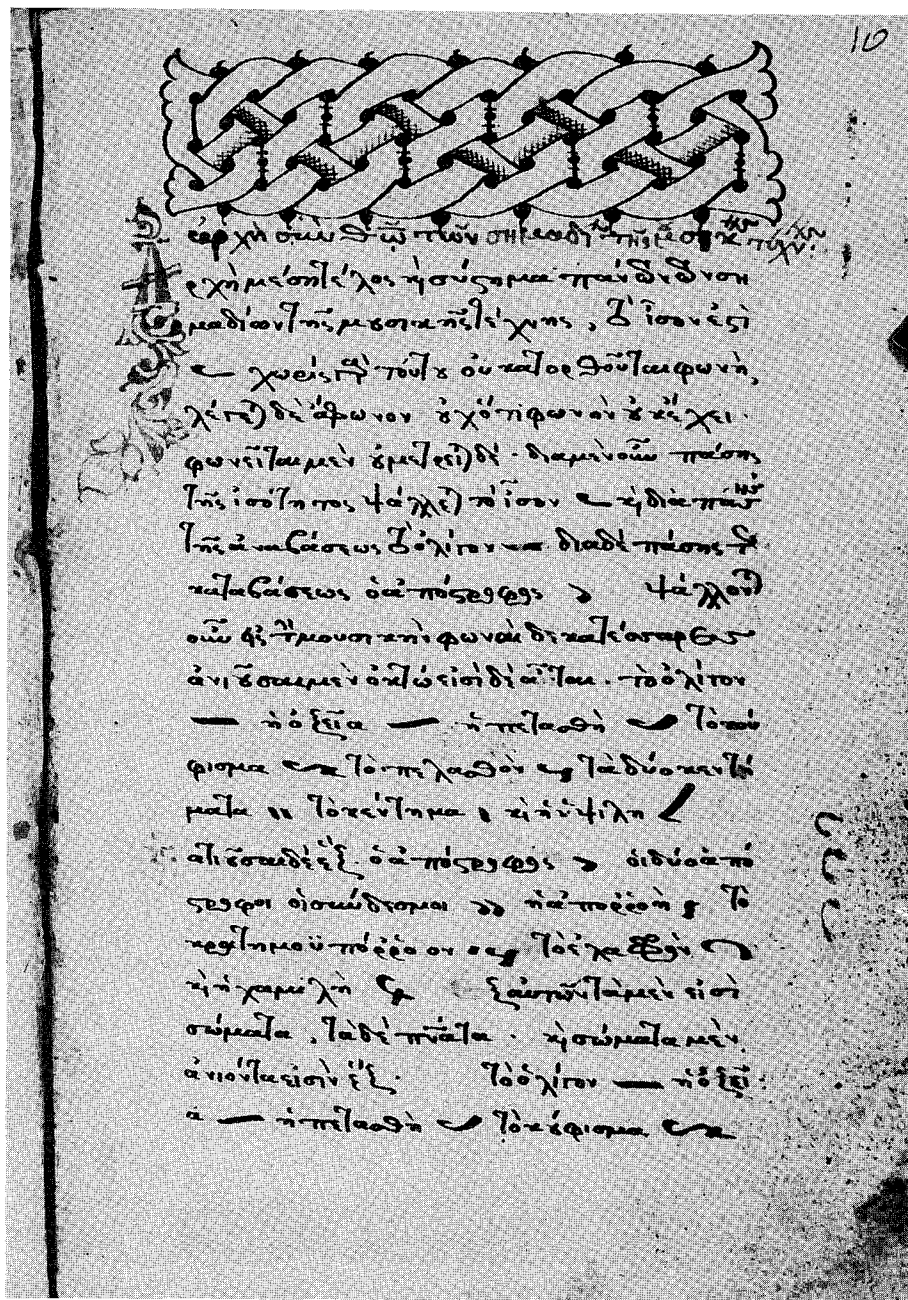 16
ἀρχὴ σὺν θῶ τῶν σημαδίων τῆς μουσικῆς τέχνης
ρχὴ μέση τέλος ἢ σύστημα πάντων τῶν ση
μαδίων τῆς μουσικῆς τέχνης, τὸ ἴσον ἐστὶ
χωρὶς γὰρ τούτου οὐ κατορθοῦται φωνὴ,
λέγεται δὲ ἄφωνον οὐχ ὅτι φωνὸν οὐκ ἔχει.
φωνεῖται μὲν οὐ μετρεῖται δέ. διὰ μὲν οὖν πάσης
τῆς ἰσότητος ψάλλεται τὸ ἴσον κὶ διὰ πάσης
τῆς ἀναβάσεως τὸ ὀλίγον διὰ δὲ πάσης τῆς
καταβάσεως ὁ ἀπόστροφος
οὖν
ἀνιοῦσαι μὲν ὀκτώ εἰσὶ δὲ αὗται. τὸ ὀλίγον
ἡ ὀξεῖα ἡ πετασθὴ τὸ κού
φισμα τὸ πελασθὸν τὰ δύο κεντή
ματα τὸ κέντημα κὶ ἡ ὑψιλὴ
κατιοῦσαι δὲ ἕξ. ὁ ἀπόστροφος οἱ δύο ἀπό
στροφοι οἱ σύνδεσμοι ἡ ἀπορροὴ τὸ
κρατημοϋπόρροον τὸ ἐλαφρὸν
κὶ ἡ χαμιλὴ ἐξ αὐτῶν τὰ μὲν εἰσὶ
σώματα, τὰ δὲ πνάτα. κὶ σώματα μὲν
ἀνιόντα εἰσὶν ἕξ. τὸ ὀλίγον ἡ ὀξεῖ
α ἡ πετασθὴ τὸ κούφισμα